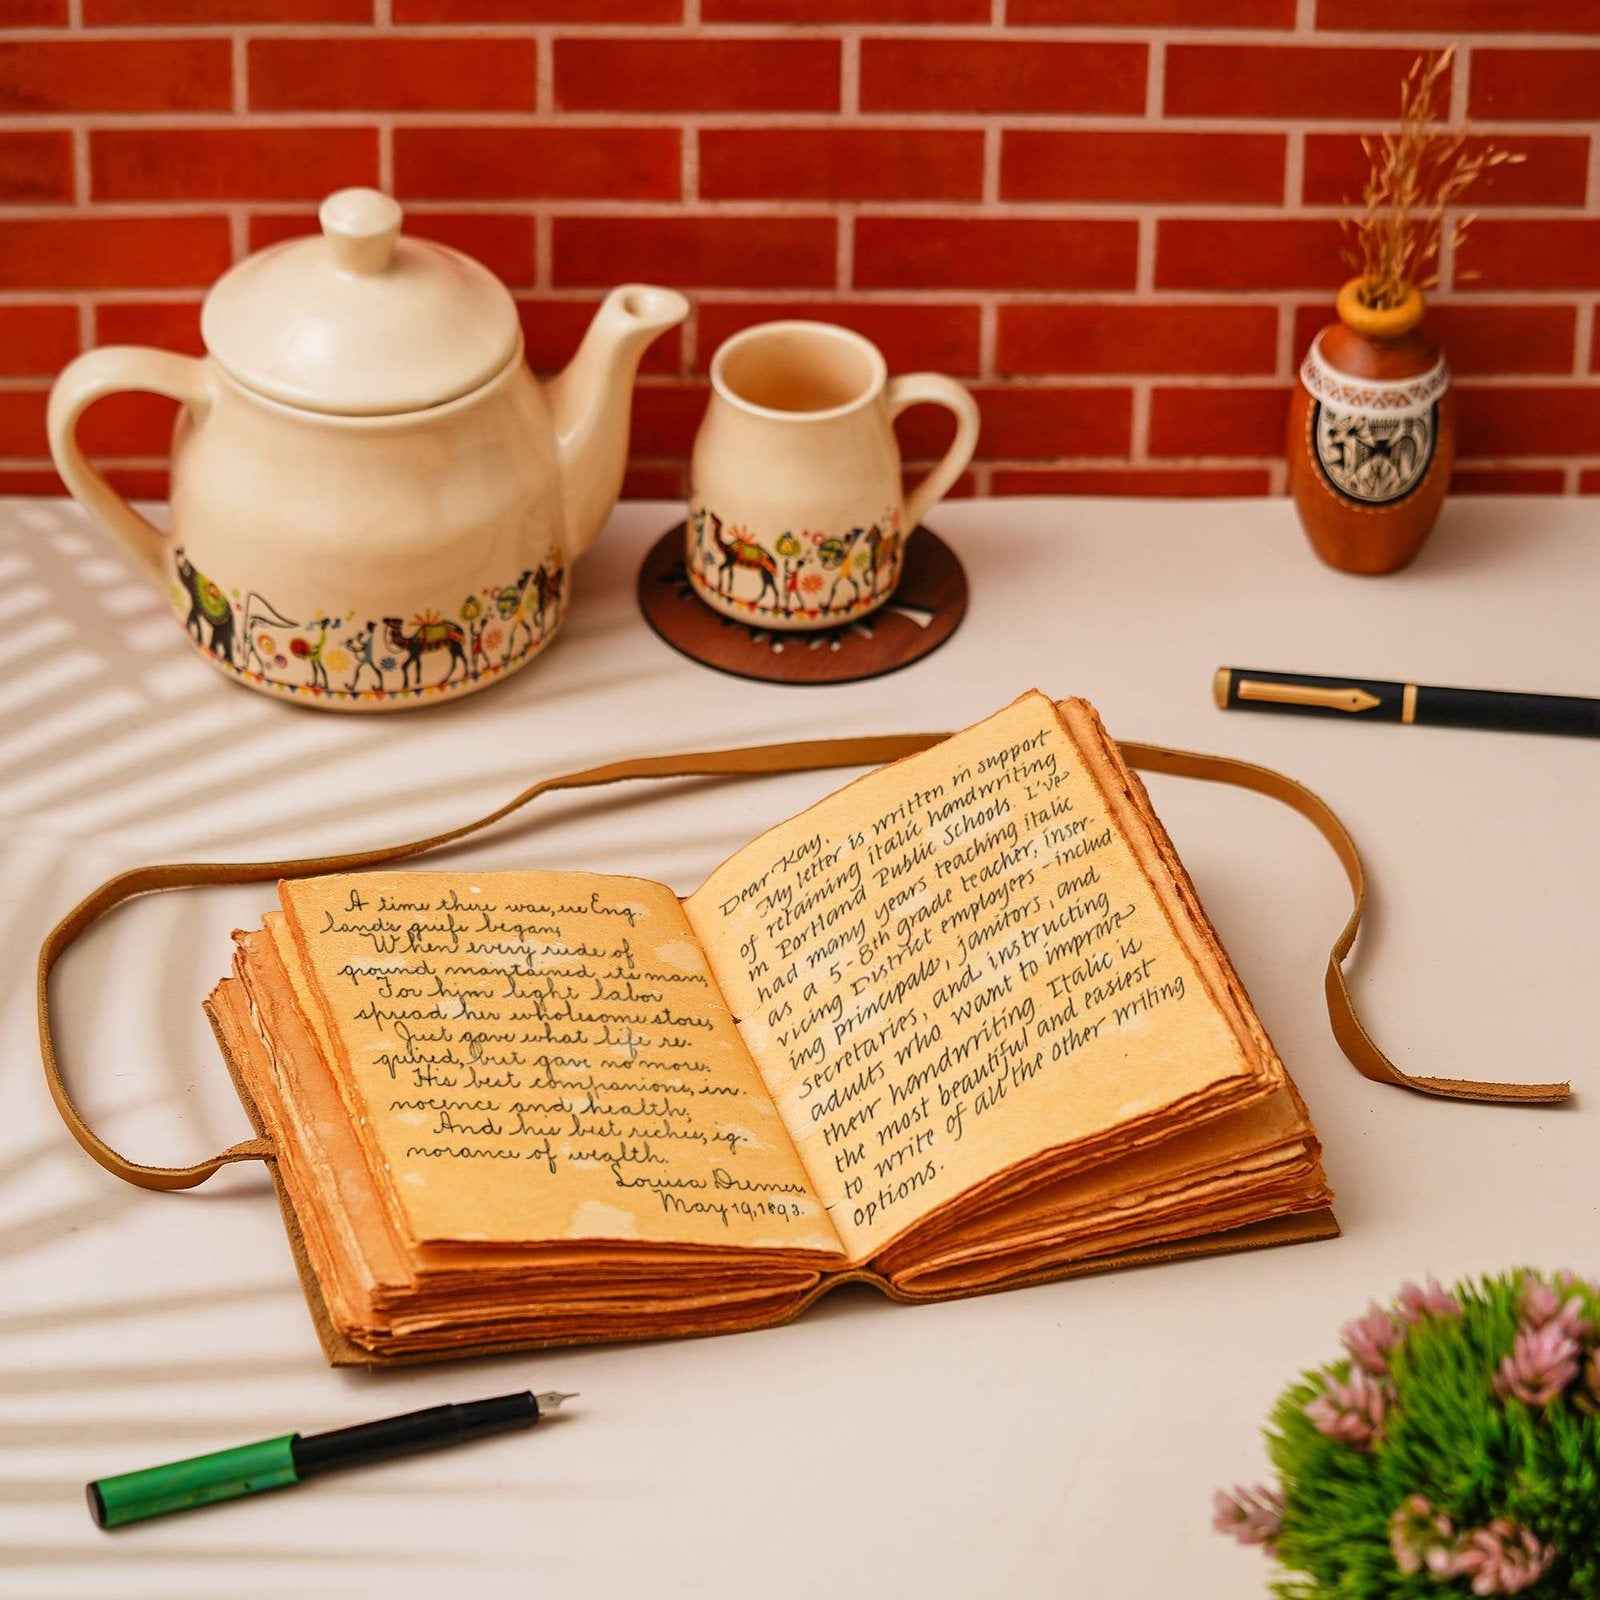 A time there was, ere Eng.
land's griefs began,
When every rude of
ground maintained its man,
For him light labor
spread her wholesome store,
Just gave what life re-
quired, but gave no more.
His best companions, in-
nocence and health,
And his best riches, ig-
norance of wealth.
Louisa
May 19, 1893.
Dear Kay,
My letter is written in support
of retaining italic handwriting
in Portland Public Schools. I've
had many years teaching italic
as a 5-8th grade teacher, inser-
vicing District employees - includ
ing principals, janitors, and
secretaries, and instructing
adults who want to improve
their handwriting. Italic is
the most beautiful and easiest
to write of all the other writing
options.